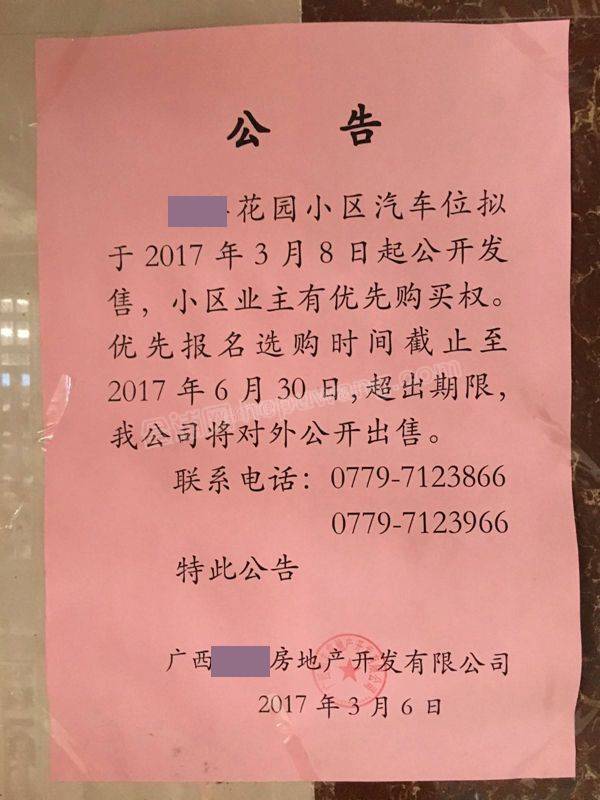 公 告
花园小区汽车位拟
于2017年3月8日起公开发
售，小区业主有优先购买权。
优先报名选购时间截止至
2017年6月30日,超出期限，
我公司将对外公开出售。
联系电话：0779-7123866
0779-7123966
特此公告
广西 房地产开发有限公司
2017年3月6日